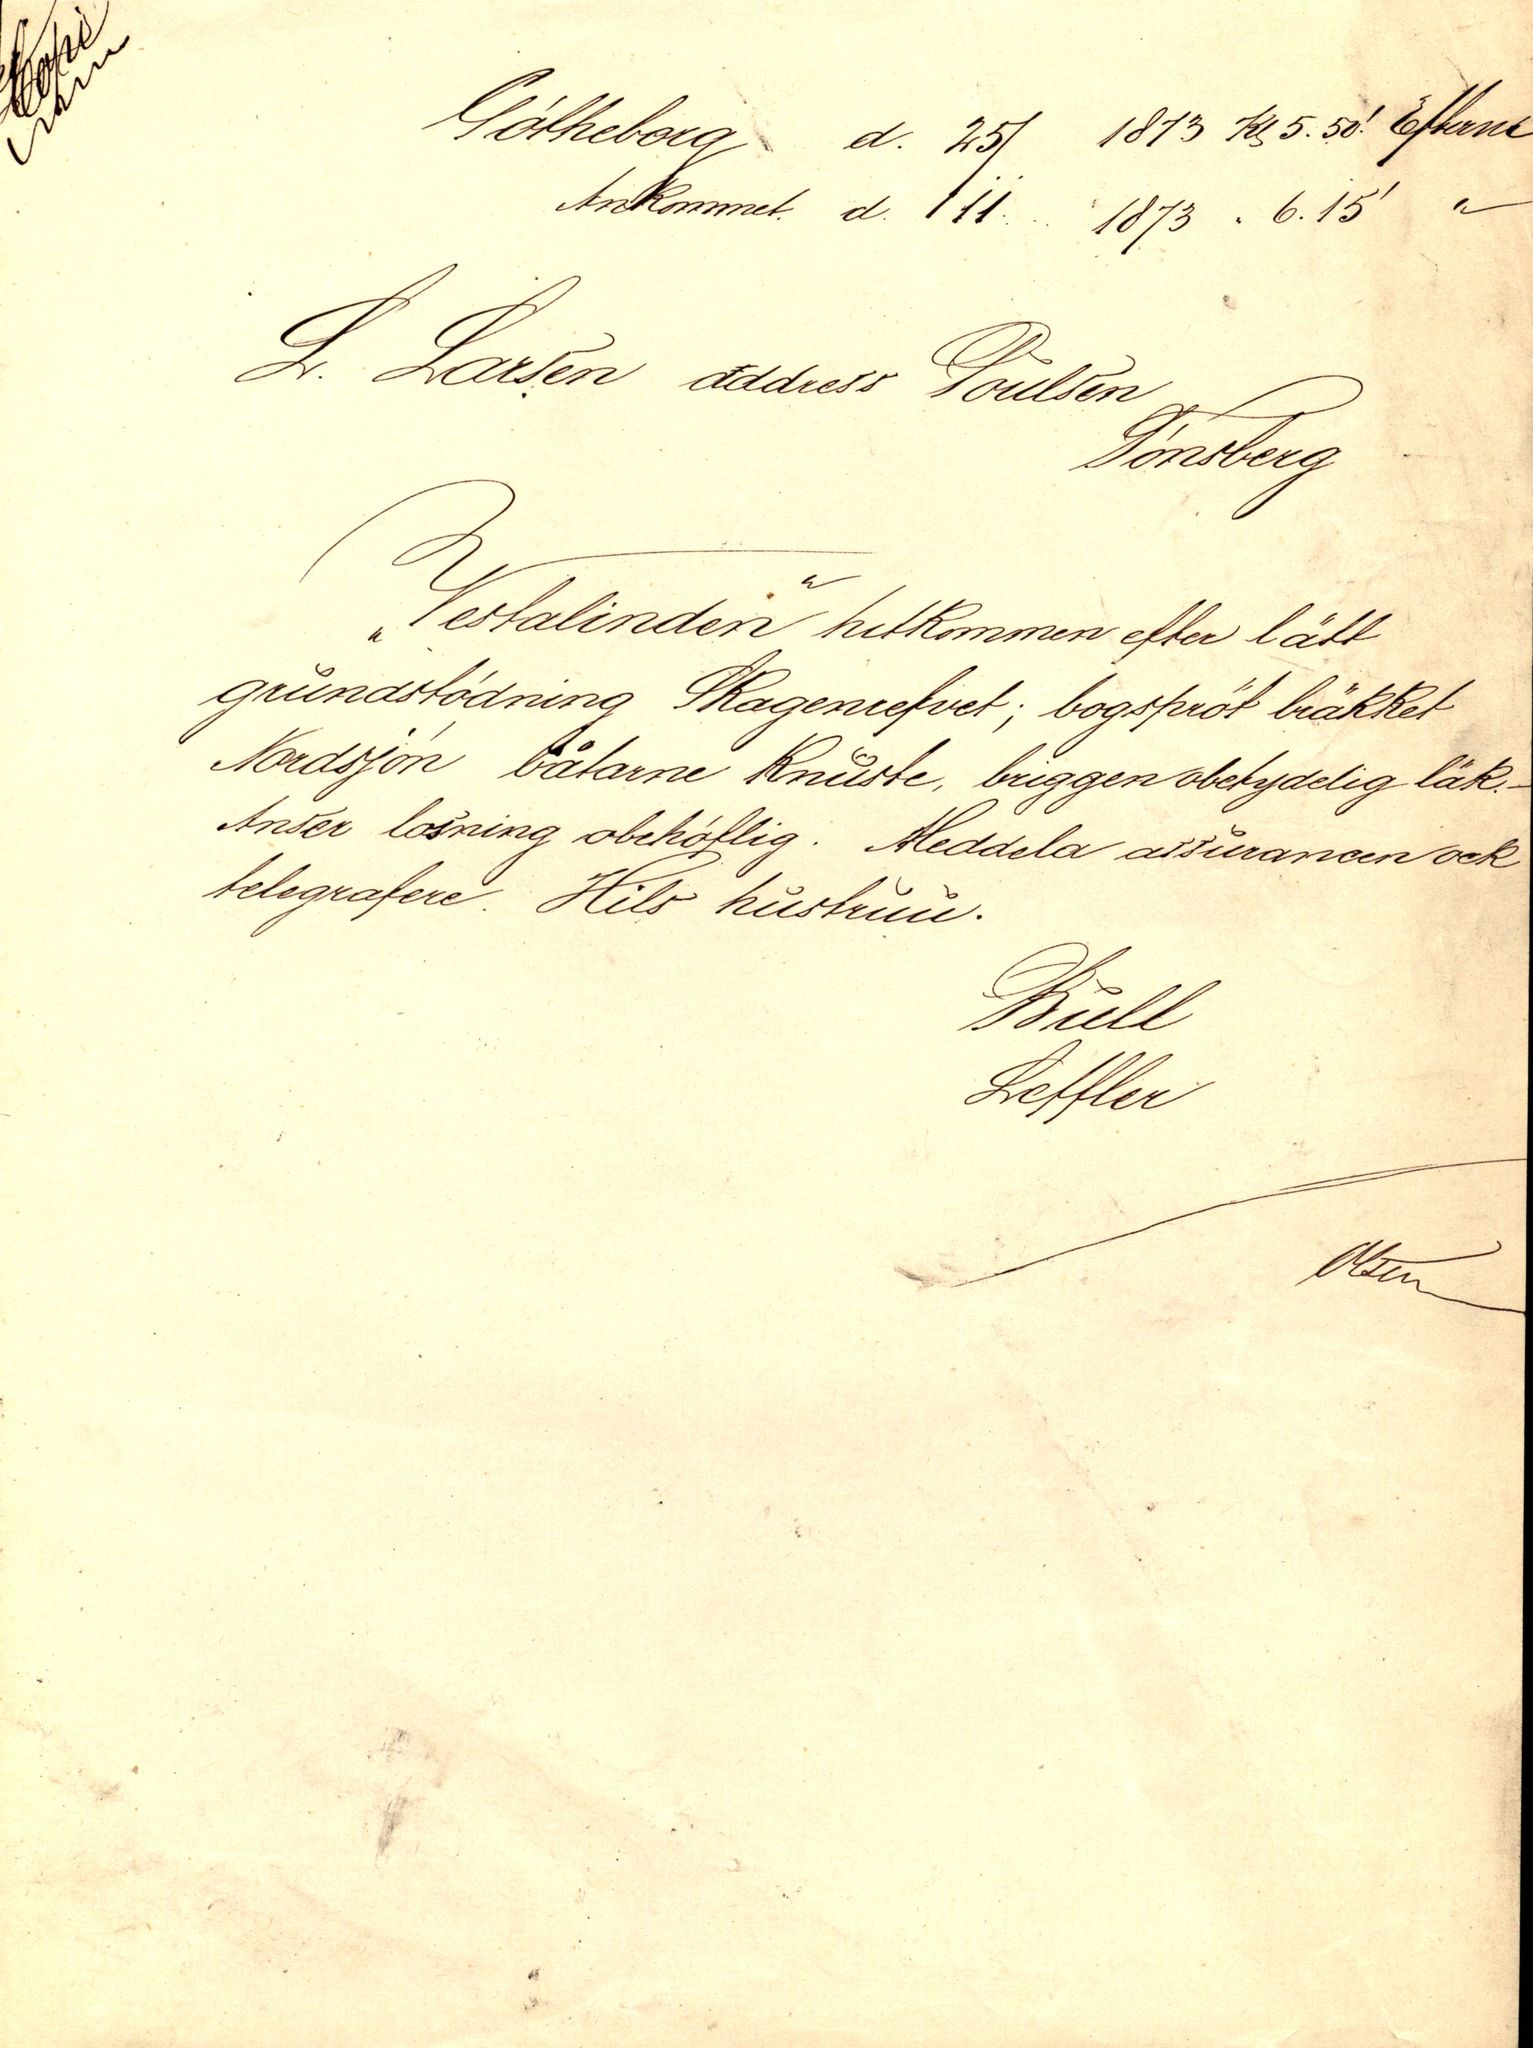 Kopi
Götheborg d. 25/ 1873 Kl 5.50' Efterm
Ankommet. d. /11. 1873 " 6.15' "
L. Larsen address Poulsen
Tönsberg
"Vestalinden" hitkommen efter lätt
grundstödning Skagenrefvet; bogspröt bräkket
Nordsjön båtarne knuste, briggen obetydelig läk. -
Anser losning obehöflig. Meddela assurancen ock
telegrafere. Hils hustruu.
Bull
Leffler
Olsen